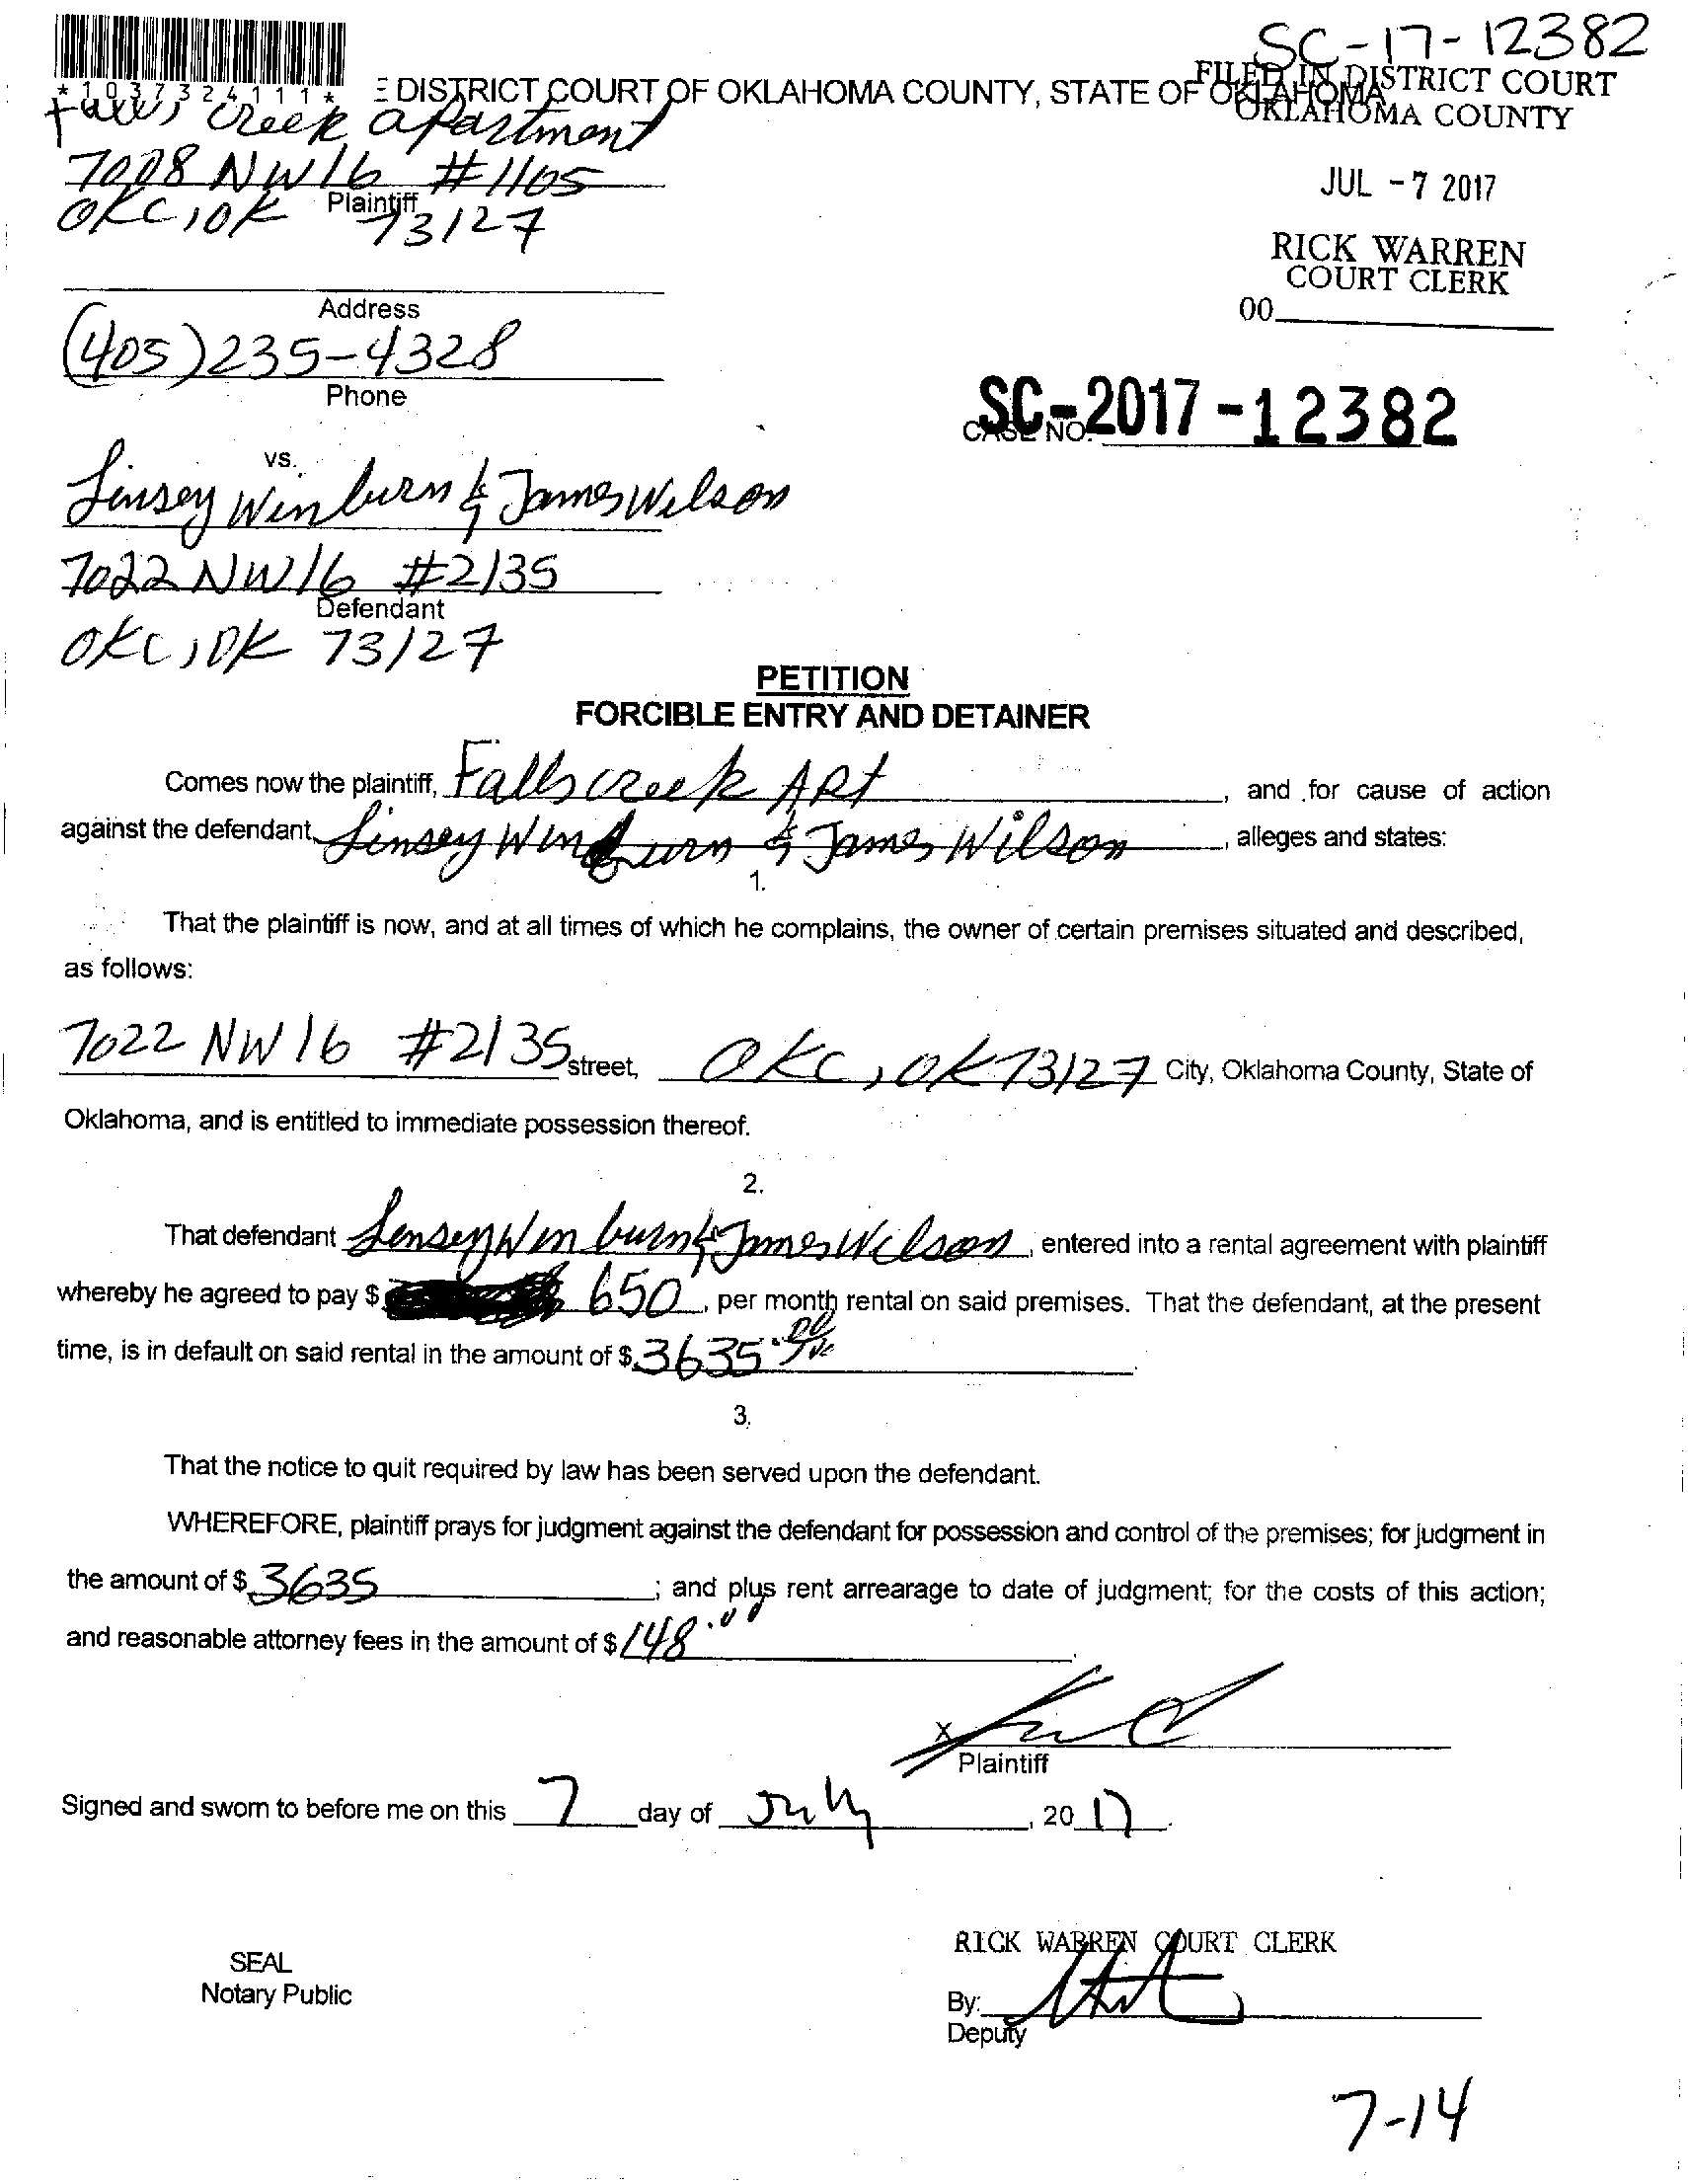 SC-17-12382
*1037324111*
E DISTRICT COURT OF OKLAHOMA COUNTY, STATE OF OKLAHOMA
FILED IN DISTRICT COURT
OKLAHOMA COUNTY
Falls Creek apartment
7008 NW 16 #1165
Plaintiff
OKC, OK 73127
JUL -7 2017
RICK WARREN
COURT CLERK
00
Address
(405) 235-4328
Phone
SC-2017-12382
CASE NO.
vs.
Linsey Winburn & James Wilson
7022 NW 16 #2135
Defendant
OKC, OK 73127
PETITION
FORCIBLE ENTRY AND DETAINER
Comes now the plaintiff, Falls creek APt, and for cause of action
against the defendant, Linsey Winburn & James Wilson, alleges and states:
1.
That the plaintiff is now, and at all times of which he complains, the owner of certain premises situated and described,
as follows:
7022 NW 16 #2135 street, OKC, OK 73127 City, Oklahoma County, State of
Oklahoma, and is entitled to immediate possession thereof.
2.
That defendant Linsey Winburn & James Wilson, entered into a rental agreement with plaintiff
whereby he agreed to pay $ 650, per month rental on said premises. That the defendant, at the present
time, is in default on said rental in the amount of $ 3635.
3.
That the notice to quit required by law has been served upon the defendant.
WHEREFORE, plaintiff prays for judgment against the defendant for possession and control of the premises; for judgment in
the amount of $ 3635; and plus rent arrearage to date of judgment; for the costs of this action;
and reasonable attorney fees in the amount of $ 148.00.
X
Plaintiff
Signed and sworn to before me on this 7 day of July, 2017.
RICK WARREN COURT CLERK
SEAL
Notary Public
By:
Deputy
7-14